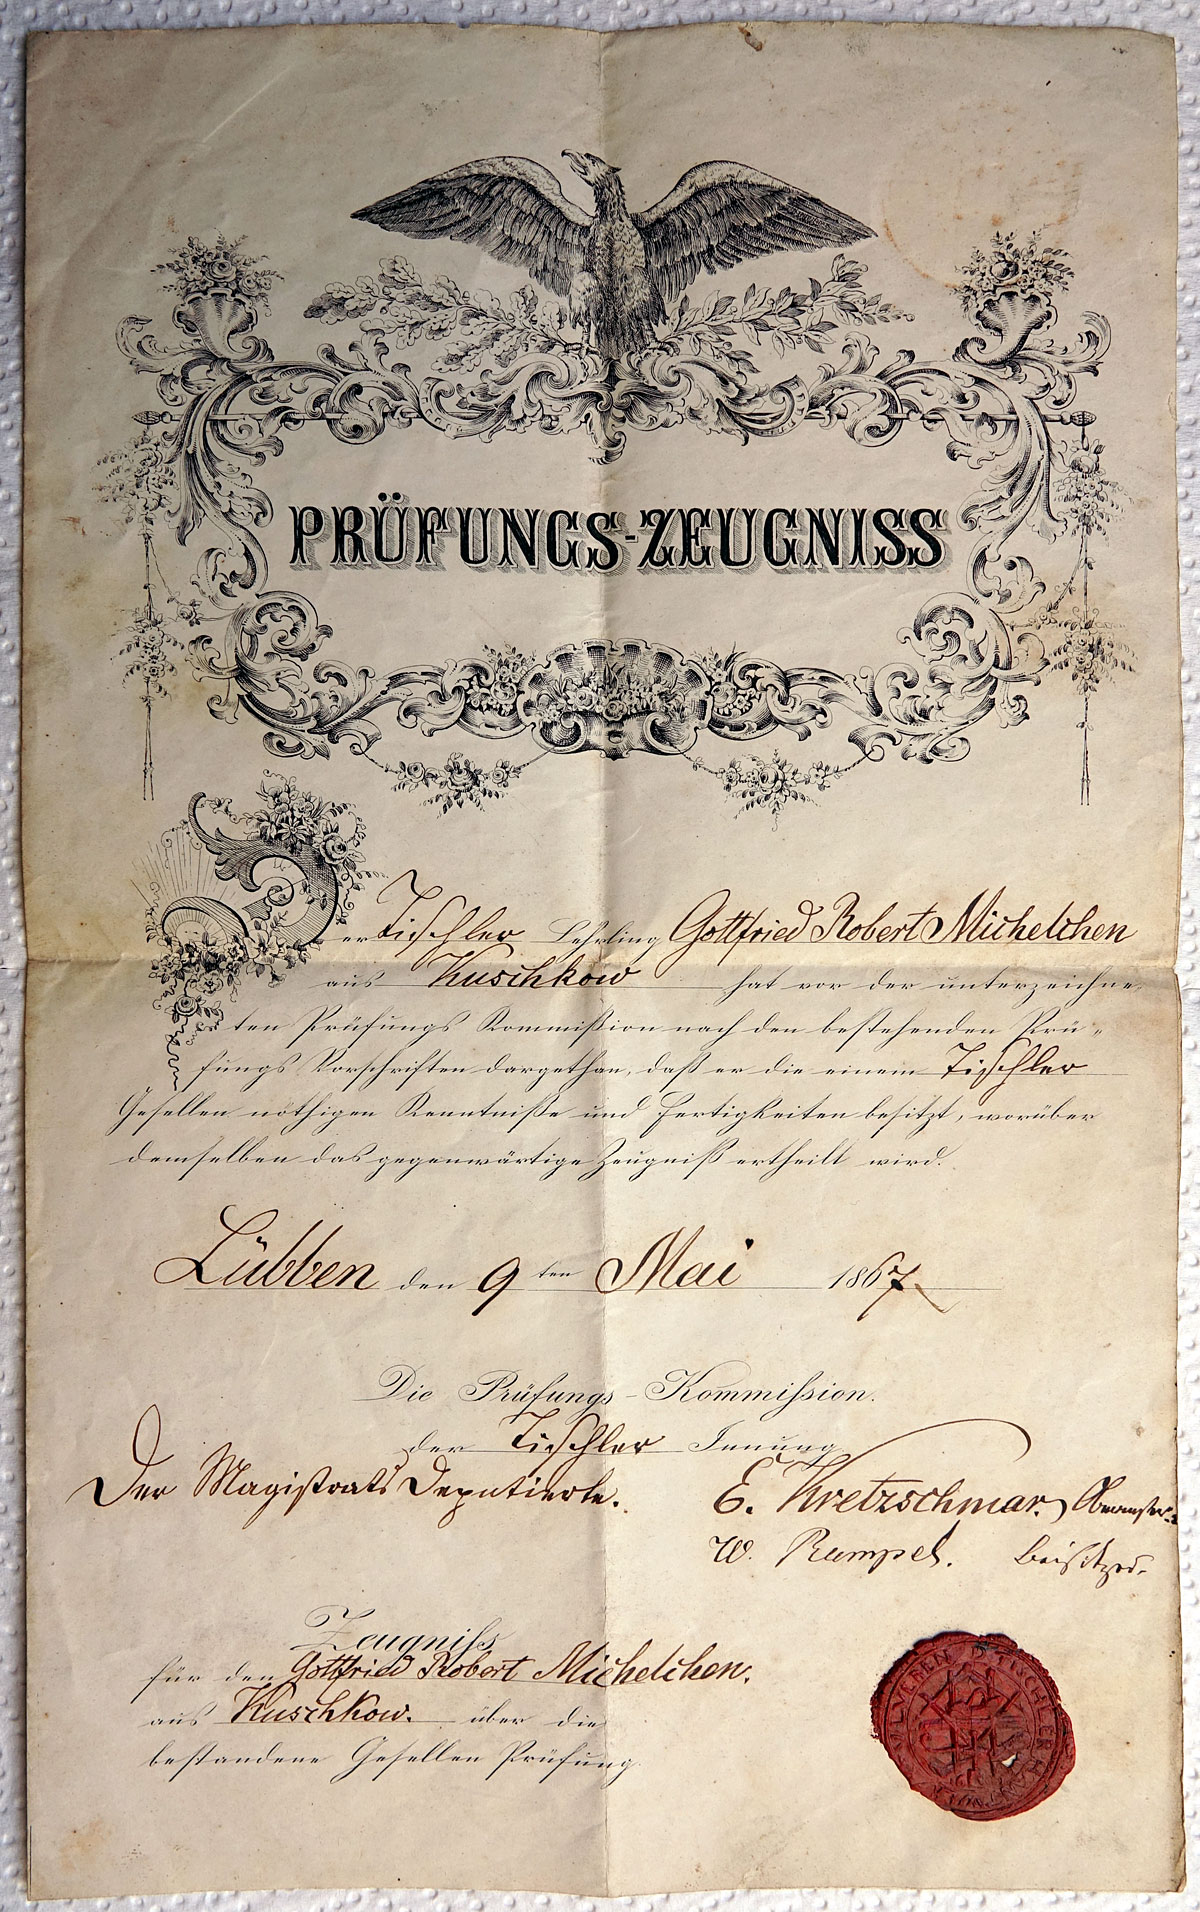 PRÜFUNGS-ZEUGNISS
Der Tischler Lehrling Gottfried Robert Michelchen
aus Kuschkow hat vor der unterzeichne-
ten Prüfungs Kommißion nach den bestehenden Prü-
fungs Vorschriften dargethan, daß er die einem Tischler
Gesellen nöthigen Kenntniße und Fertigkeiten besitzt, worüber
demselben das gegenwärtige Zeugniß ertheilt wird.
Lübben den 9ten Mai 1867
Die Prüfungs-Kommißion.
der Tischler Innung
Der Magistrats Deputierte. E. Kretzschmar, Obermeister
W. Rumpel. Beisitzer.
Zeugniß
für den Gottfried Robert Michelchen.
aus Kuschkow. über die
bestandene Gesellen Prüfung.
TISCHLER